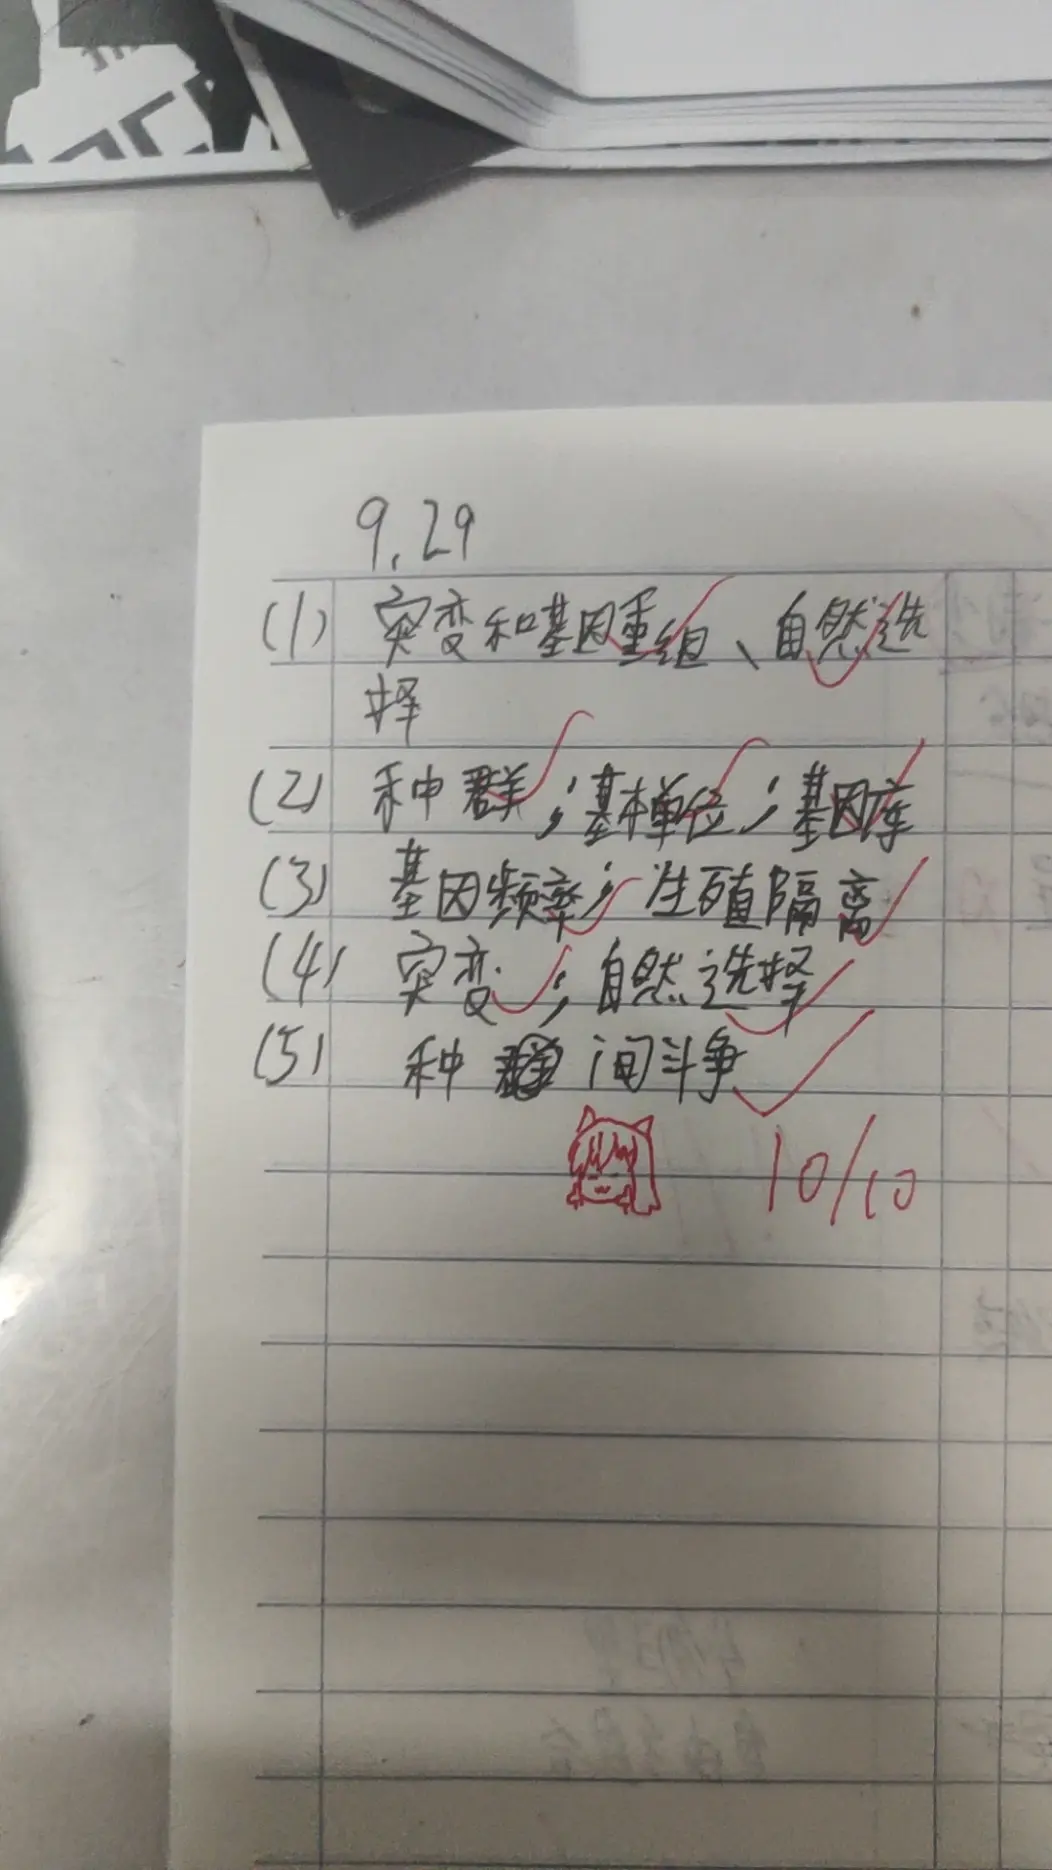 9.29
(1) 突变和基因重组、自然选
择
(2) 种群;基本单位;基因库
(3) 基因频率;生殖隔离
(4) 突变;自然选择
(5) 种间斗争
10/10